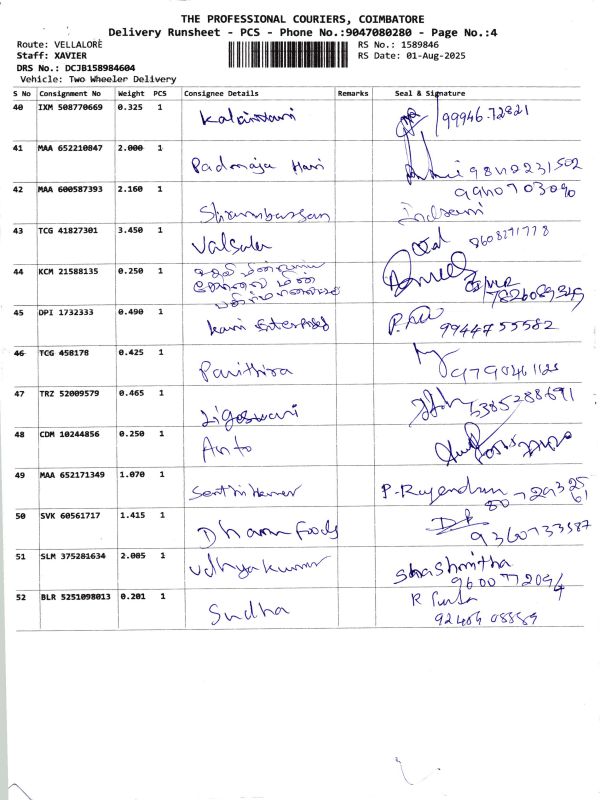 THE PROFESSIONAL COURIERS, COIMBATORE
Delivery Runsheet - PCS - Phone No.:9047080280 - Page No.:4
Route: VELLALORE
RS No.: 1589846
Staff: XAVIER
RS Date: 01-Aug-2025
DRS No.: DCJB158984604
Vehicle: Two Wheeler Delivery
S No Consignment No Weight PCS Consignee Details Remarks Seal & Signature
40 IXM 508770669 0.325 1 99946-72821
41 MAA 652210847 2.000 1 Padmaja Hari 9840223 1502
42 MAA 600587393 2.160 1 9940703090
Indrani
43 TCG 41827301 3.450 1 Valsala 8608271778
44 KCM 21588135 0.250 1
மின்
45 DPI 1732333 0.490 1 Kani Enterprises 9944755582
46 TCG 458178 0.425 1 Pavithra 9790461125
47 TRZ 52009579 0.465 1 5385288691
48 CDM 10244856 0.250 1 Anto
49 MAA 652171349 1.070 1 Senthilkumar P-Rajendran
50 SVK 60561717 1.415 1 Dharun Foods 9360733587
51 SLM 375281634 2.085 1 Udhyakumar Shashmitha
9600772094
52 BLR 5251098013 0.201 1 Sudha